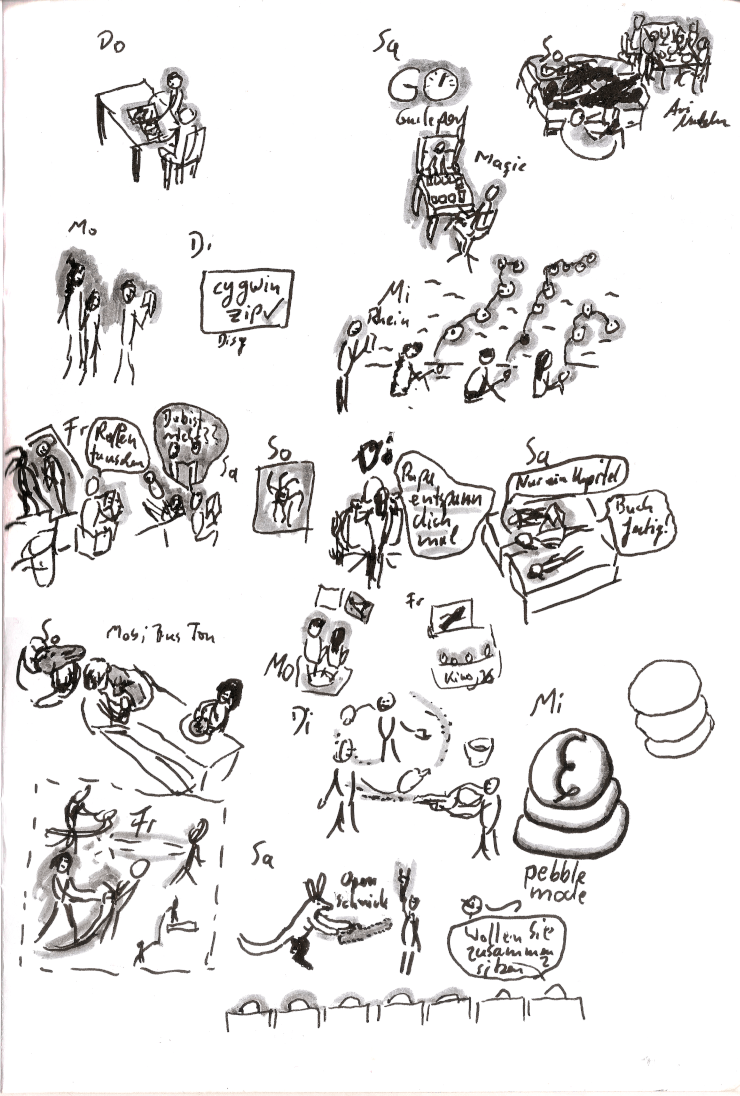 Do
Sa
GO
So
Magic
Mo
Di
cygwin
zip ✓
Mi
Rhein
Fr
Rollen
tauschen
Du bist
nicht??
Sa
So
Do
Papa
entspann
dich
mal
Sa
Nur ein Kapitel
Buch
fertig!
So
Mobi aus Ton
Mo
Fr
Kino
Di
Mi
pebble
mode
Fr
Sa
Open
Wollen Sie
zusammen
sitzen?